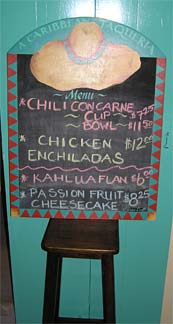 A CARIBBEAN TAQUERIA
Menu
CHILI CON CARNE
~ CUP ~ $7.25
~ BOWL ~ $11.50
CHICKEN $12.00
ENCHILADAS
KAHLUA FLAN $6.00
PASSION FRUIT
CHEESECAKE $8.25